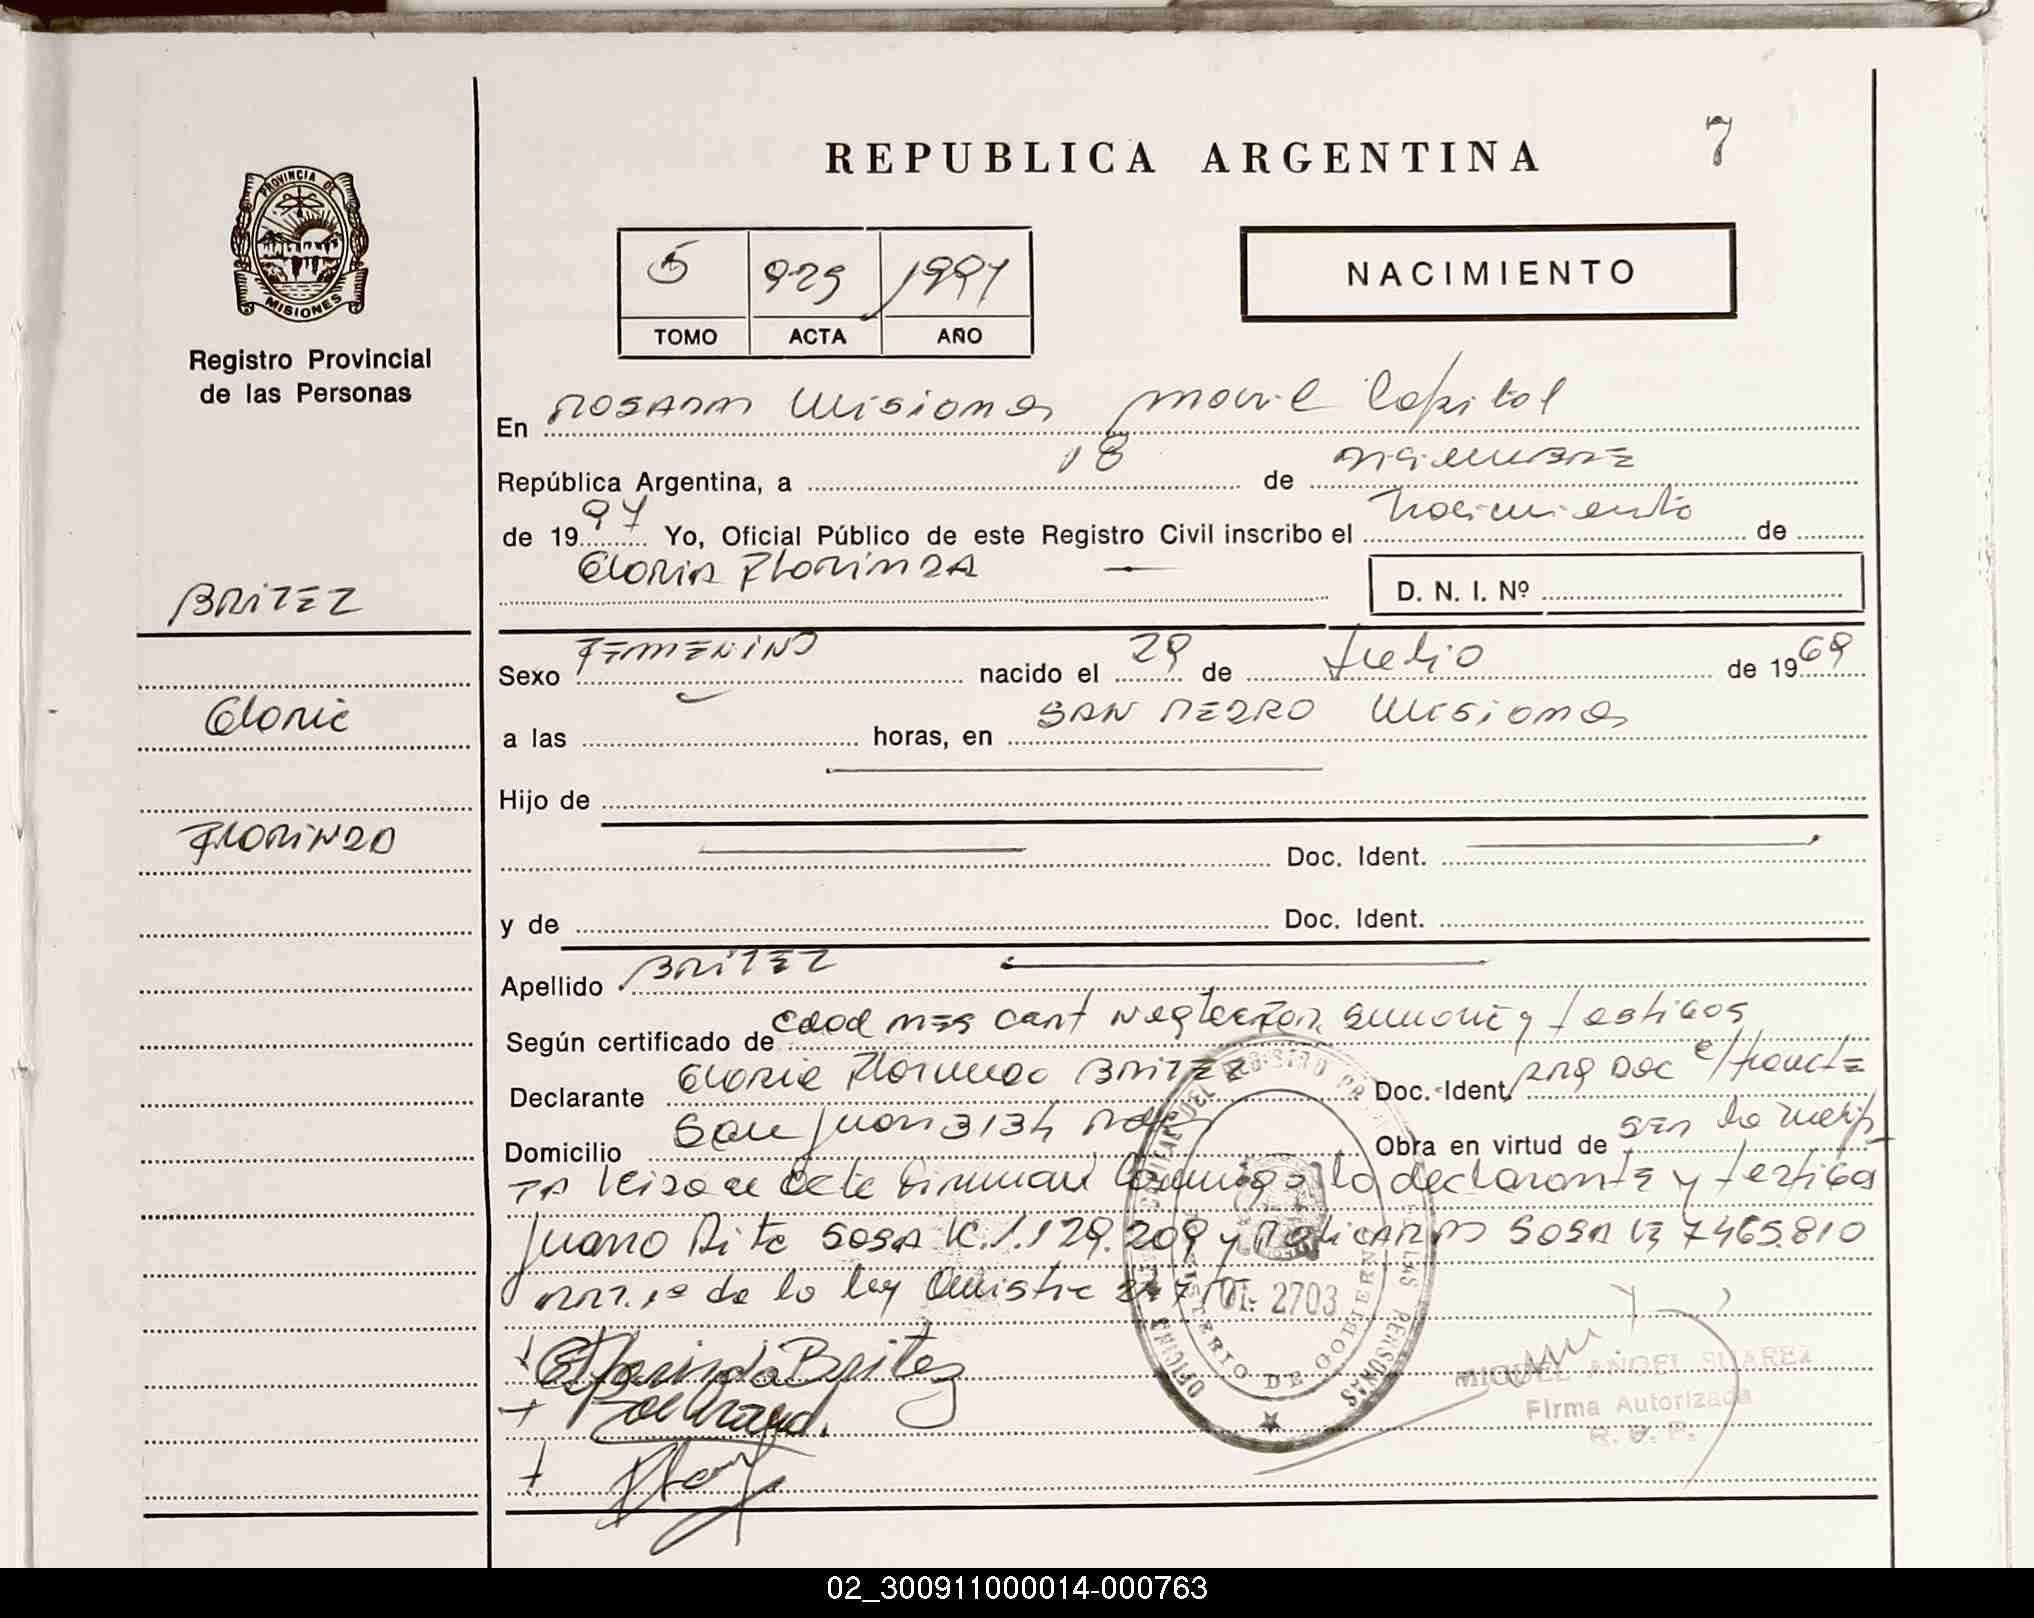 PROVINCIA DE
MISIONES
Registro Provincial
de las Personas
REPUBLICA ARGENTINA
7
5 929 1997
TOMO ACTA AÑO
NACIMIENTO
En Posadas Misiones Movil Capital
República Argentina, a 18 de Diciembre
de 1997 Yo, Oficial Público de este Registro Civil inscribo el Nacimiento de
Gloria Florinda
D. N. I. Nº
BRITEZ
Sexo FEMENINO nacido el 29 de Julio de 1969
Gloria
a las horas, en SAN PEDRO Misiones
Hijo de
Florinda
Doc. Ident.
y de Doc. Ident.
Apellido BRITEZ
Según certificado de edad cert y testigos
Declarante Gloria Florinda BRITEZ Doc. Ident. Doc e/tramite
Domicilio San Juan 3134 Obra en virtud de
Leida el acta firman conmigo la declarante y testigos
Juana Rita SOSA 1.129.209 y Policarpo SOSA 7465.810
de la ley
OFICINA REGISTRO LAS PERSONAS
MINISTERIO DE GOBIERNO
2703
Florinda Britez
MIGUEL ANGEL SUAREZ
Firma Autorizada
R. P. P.
02_300911000014-000763